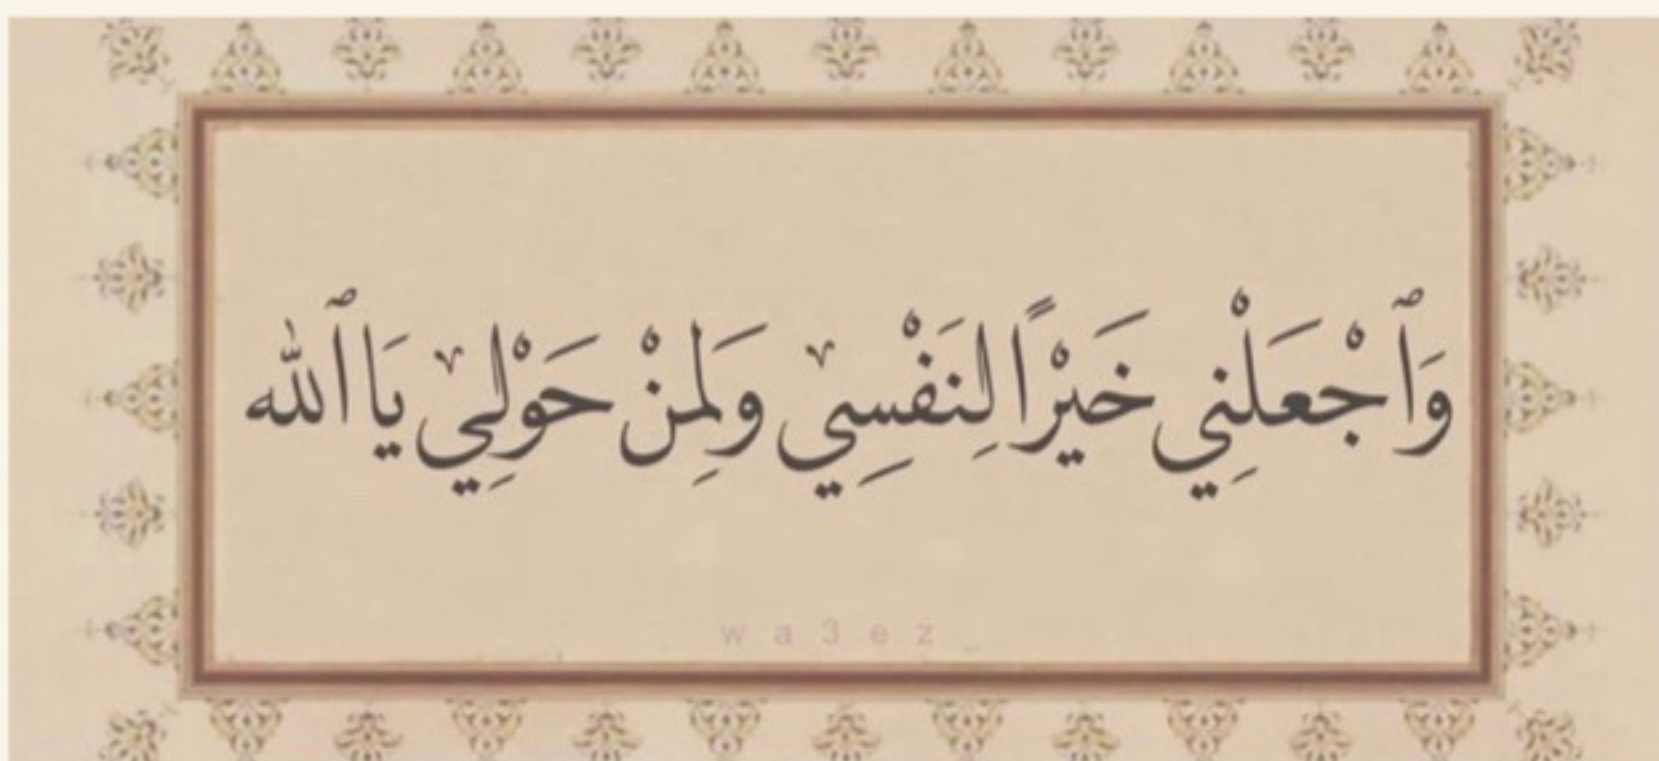 وَٱجْعَلْنِي خَيْرًا لِنَفْسِي وَلِمنْ حَوْلِي يَا ٱلله
wa3ez_